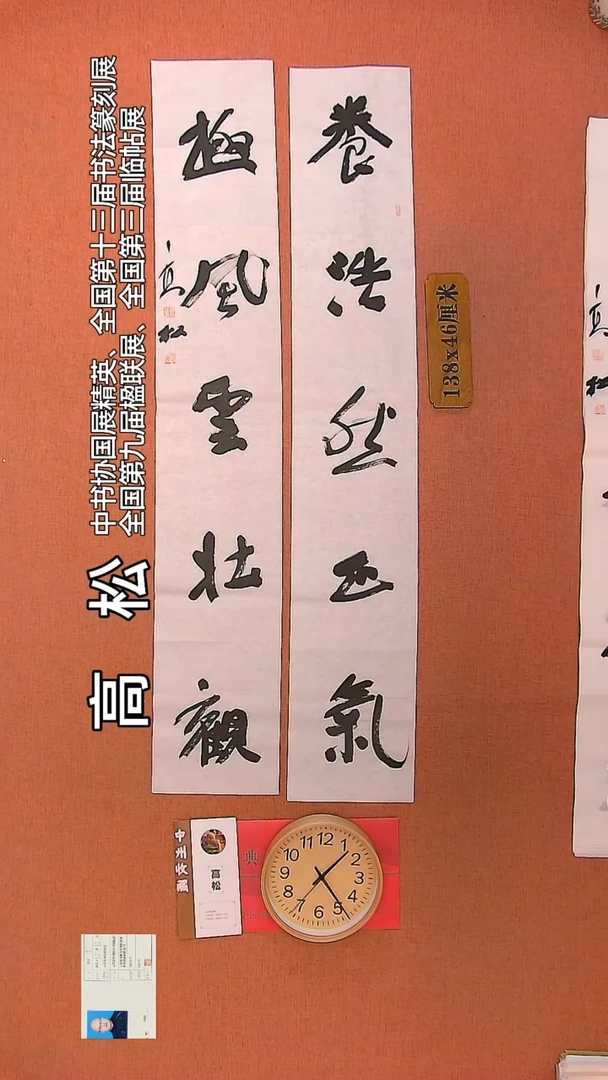 養浩然正氣
極風雲壯觀
高松
138x46厘米
高松
中书协国展精英、全国第十三届书法篆刻展
全国第九届楹联展、全国第三届临帖展
高松
典
12
1
2
3
4
5
6
7
8
9
10
11
高
松